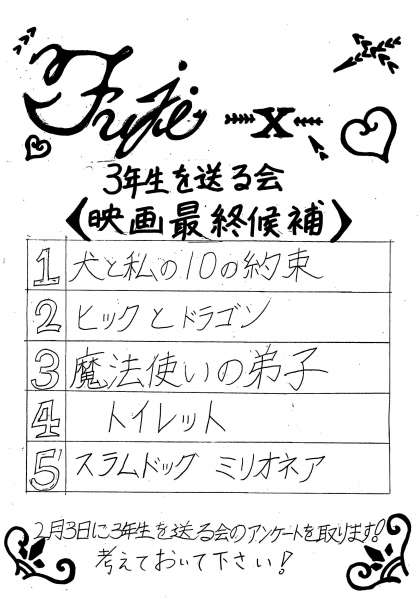 Fujie -x-
3年生を送る会
〈映画最終候補〉
1 犬と私の10の約束
2 ヒックとドラゴン
3 魔法使いの弟子
4 トイレット
5 スラムドッグ ミリオネア
2月3日に3年生を送る会のアンケートを取ります!
考えておいて下さい!